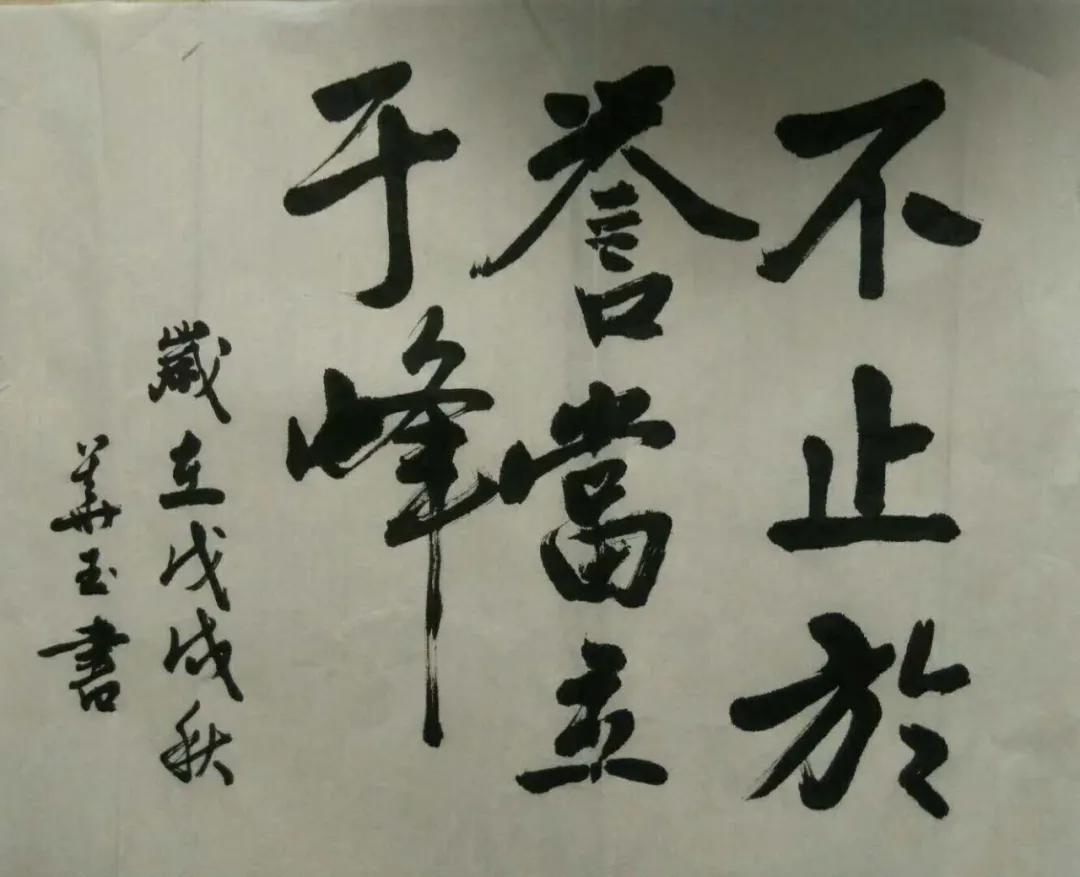 不止於
誉當立
于峰
歲在戊戌秋
華玉書